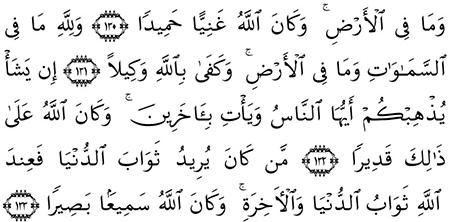 وَمَا فِى ٱلْأَرْضِ ۚ وَكَانَ ٱللَّهُ غَنِيًّا حَمِيدًا ﴿١٣٠﴾ وَلِلَّهِ مَا فِى
ٱلسَّمَـٰوَٰتِ وَمَا فِى ٱلْأَرْضِ ۚ وَكَفَىٰ بِٱللَّهِ وَكِيلاً ﴿١٣١﴾ إِن يَشَأْ
يُذْهِبْكُمْ أَيُّهَا ٱلنَّاسُ وَيَأْتِ بِـَٔاخَرِينَ ۚ وَكَانَ ٱللَّهُ عَلَىٰ
ذَٰلِكَ قَدِيرًا ﴿١٣٢﴾ مَّن كَانَ يُرِيدُ ثَوَابَ ٱلدُّنْيَا فَعِندَ
ٱللَّهِ ثَوَابُ ٱلدُّنْيَا وَٱلْـَٔاخِرَةِ ۚ وَكَانَ ٱللَّهُ سَمِيعًۢا بَصِيرًا ﴿١٣٣﴾